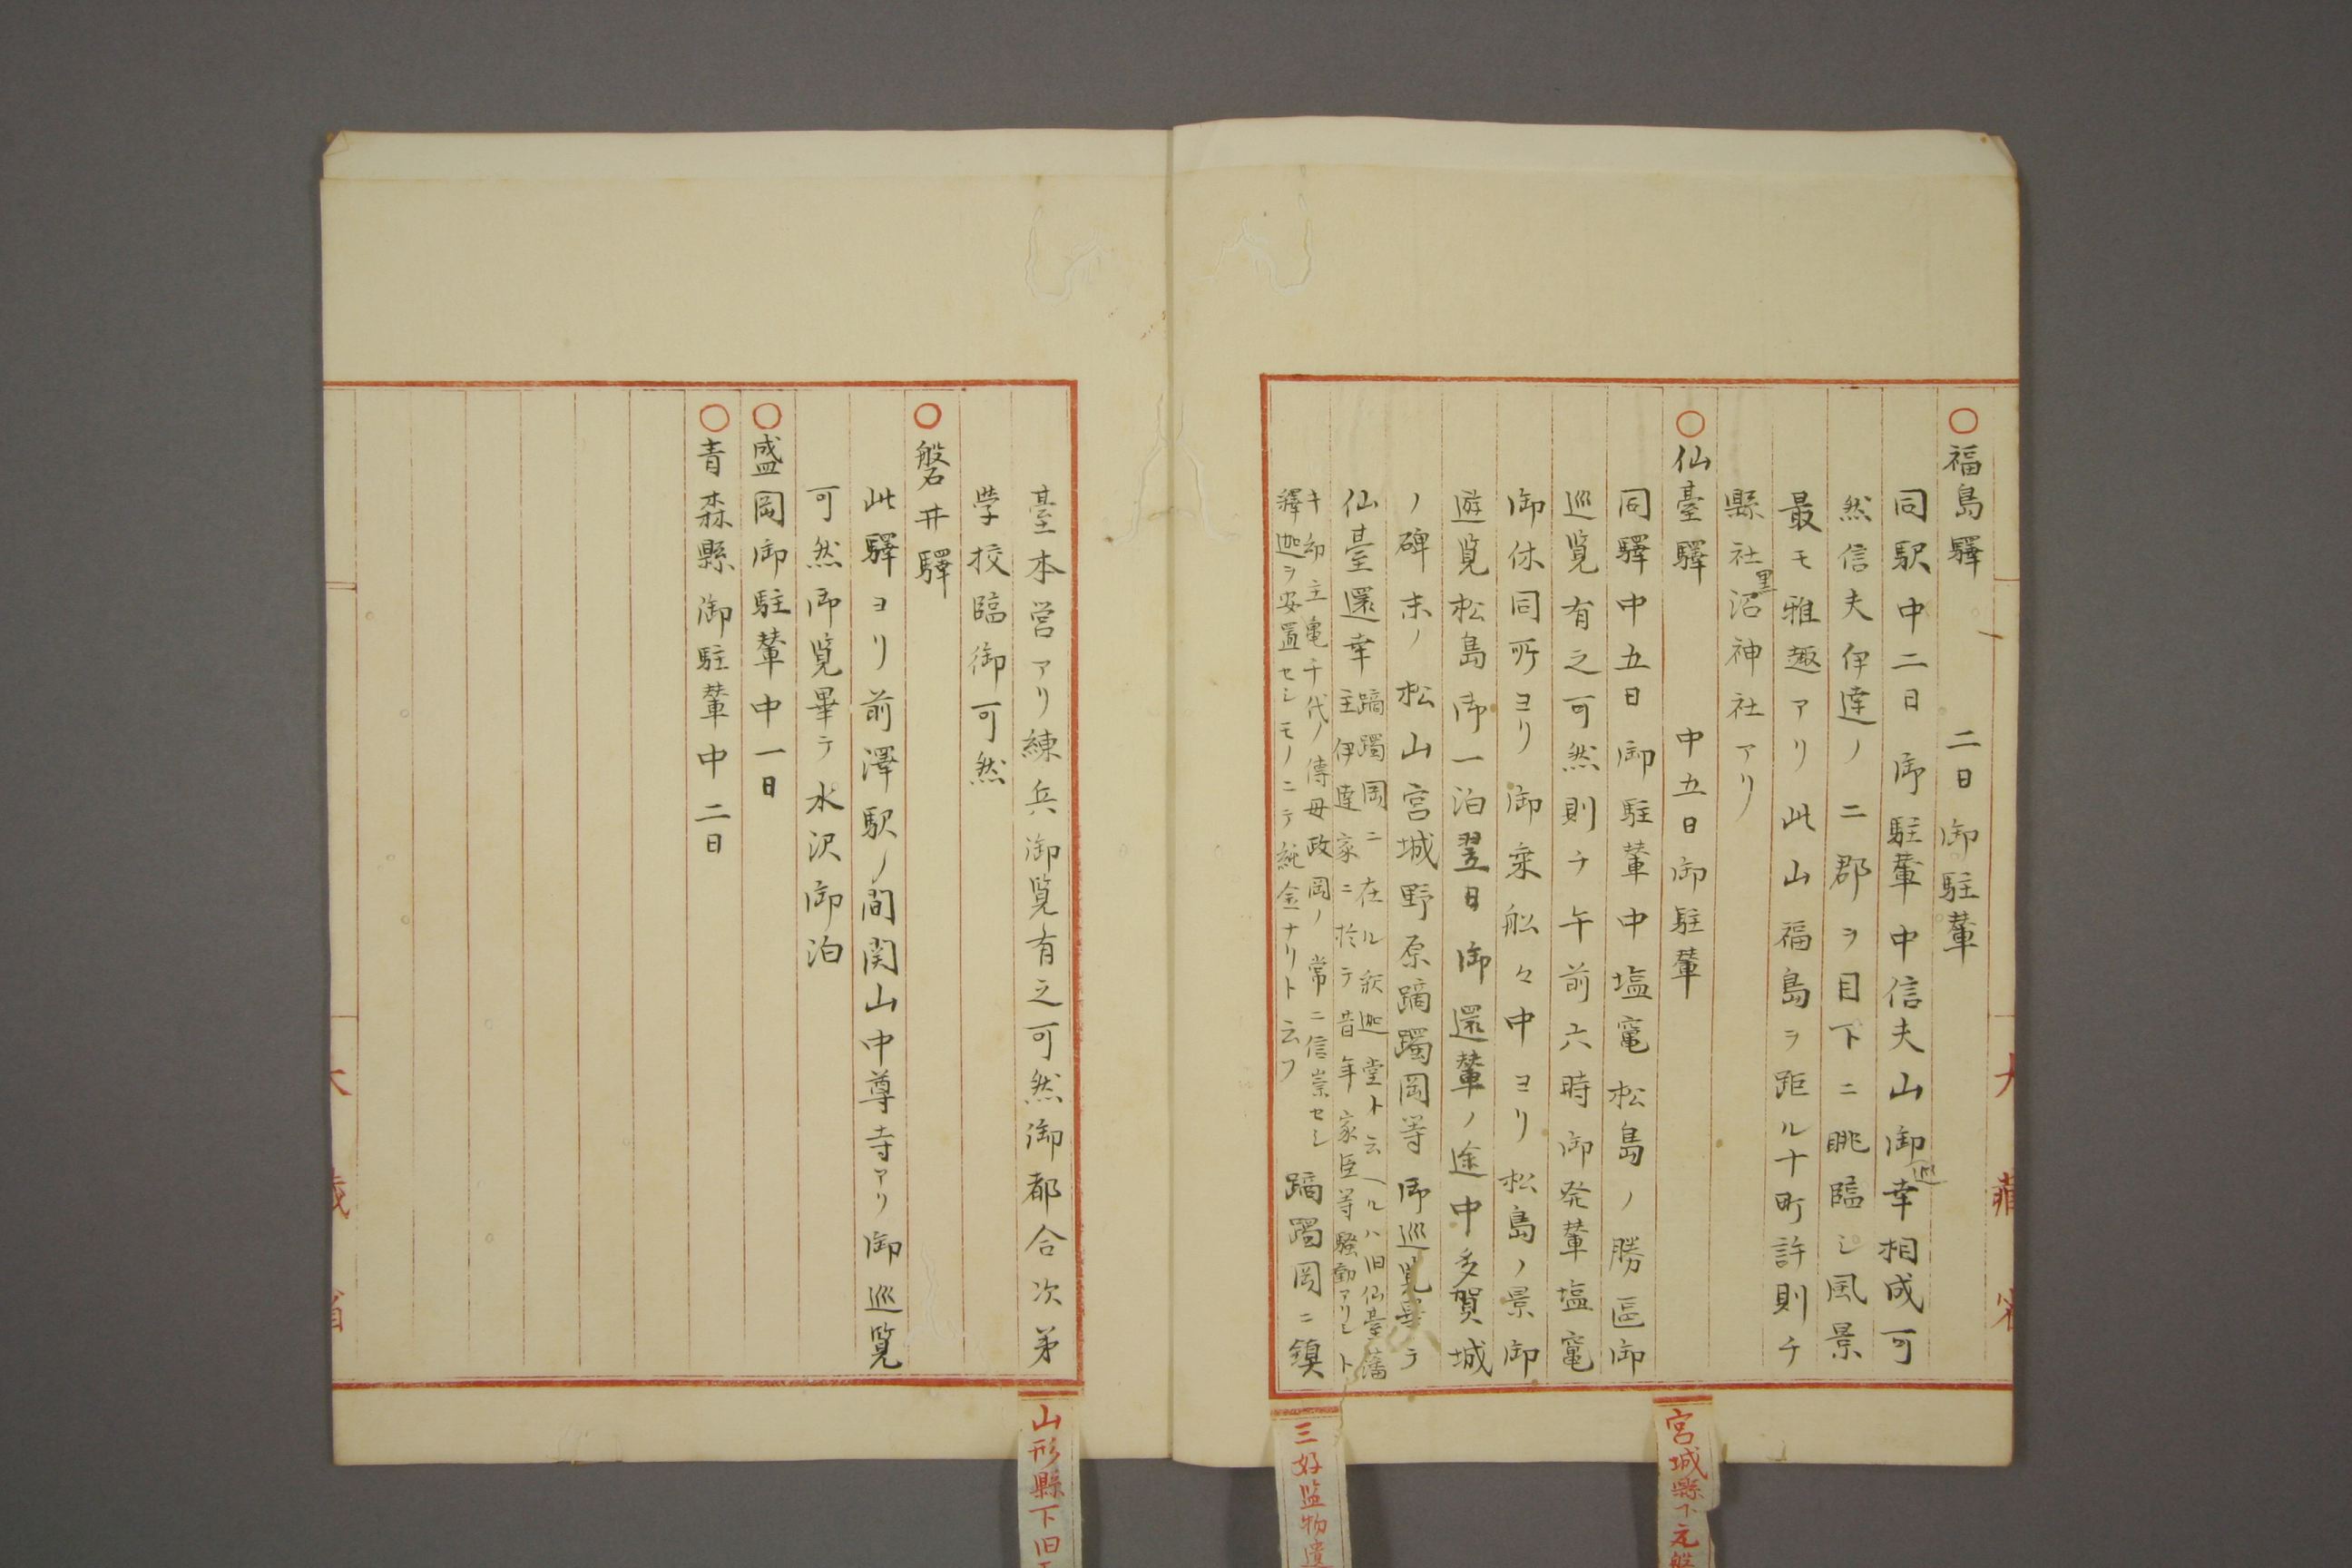 ○福島驛　二日御駐輦
同駅中二日御駐輦中信夫山御巡幸相成可
然信夫伊達ノ二郡ヲ目下ニ眺臨シ風景
最モ雅趣アリ此山福島ヲ距ル十町許則チ
縣社黒沼神社アリ
○仙臺驛　中五日御駐輦
同驛中五日御駐輦中塩竃松島ノ勝區御
巡覧有之可然則チ午前六時御発輦塩竃
御休同所ヨリ御乗船々中ヨリ松島ノ景御
遊覧松島御一泊翌日御還輦ノ途中多賀城
ノ碑末ノ松山宮城野原躑躅岡等御巡覧畢テ
仙臺還幸
躑躅岡ニ在ル釈迦堂ト云ヘルハ旧仙臺藩
主伊達家ニ於テ昔年家臣等騒動アリシト
キ幼主亀千代ノ傳母政岡ノ常ニ信崇セシ
釋迦ヲ安置セシモノニテ純金ナリト云フ
躑躅岡ニ鎮
臺本営アリ練兵御覧有之可然御都合次第
学校臨御可然
○磐井驛
此驛ヨリ前澤駅ノ間関山中尊寺アリ御巡覧
可然御覧畢テ水沢御泊
○盛岡御駐輦中一日
○青森縣御駐輦中二日
大藏省
宮城縣下元
三好監物遺
山形縣下旧